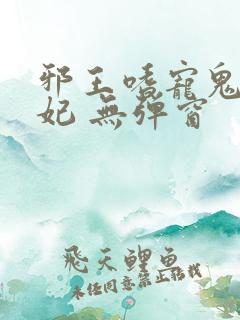 邪王嗜寵鬼
妃 無彈窗
飛天鯉魚
未經同意禁止轉載